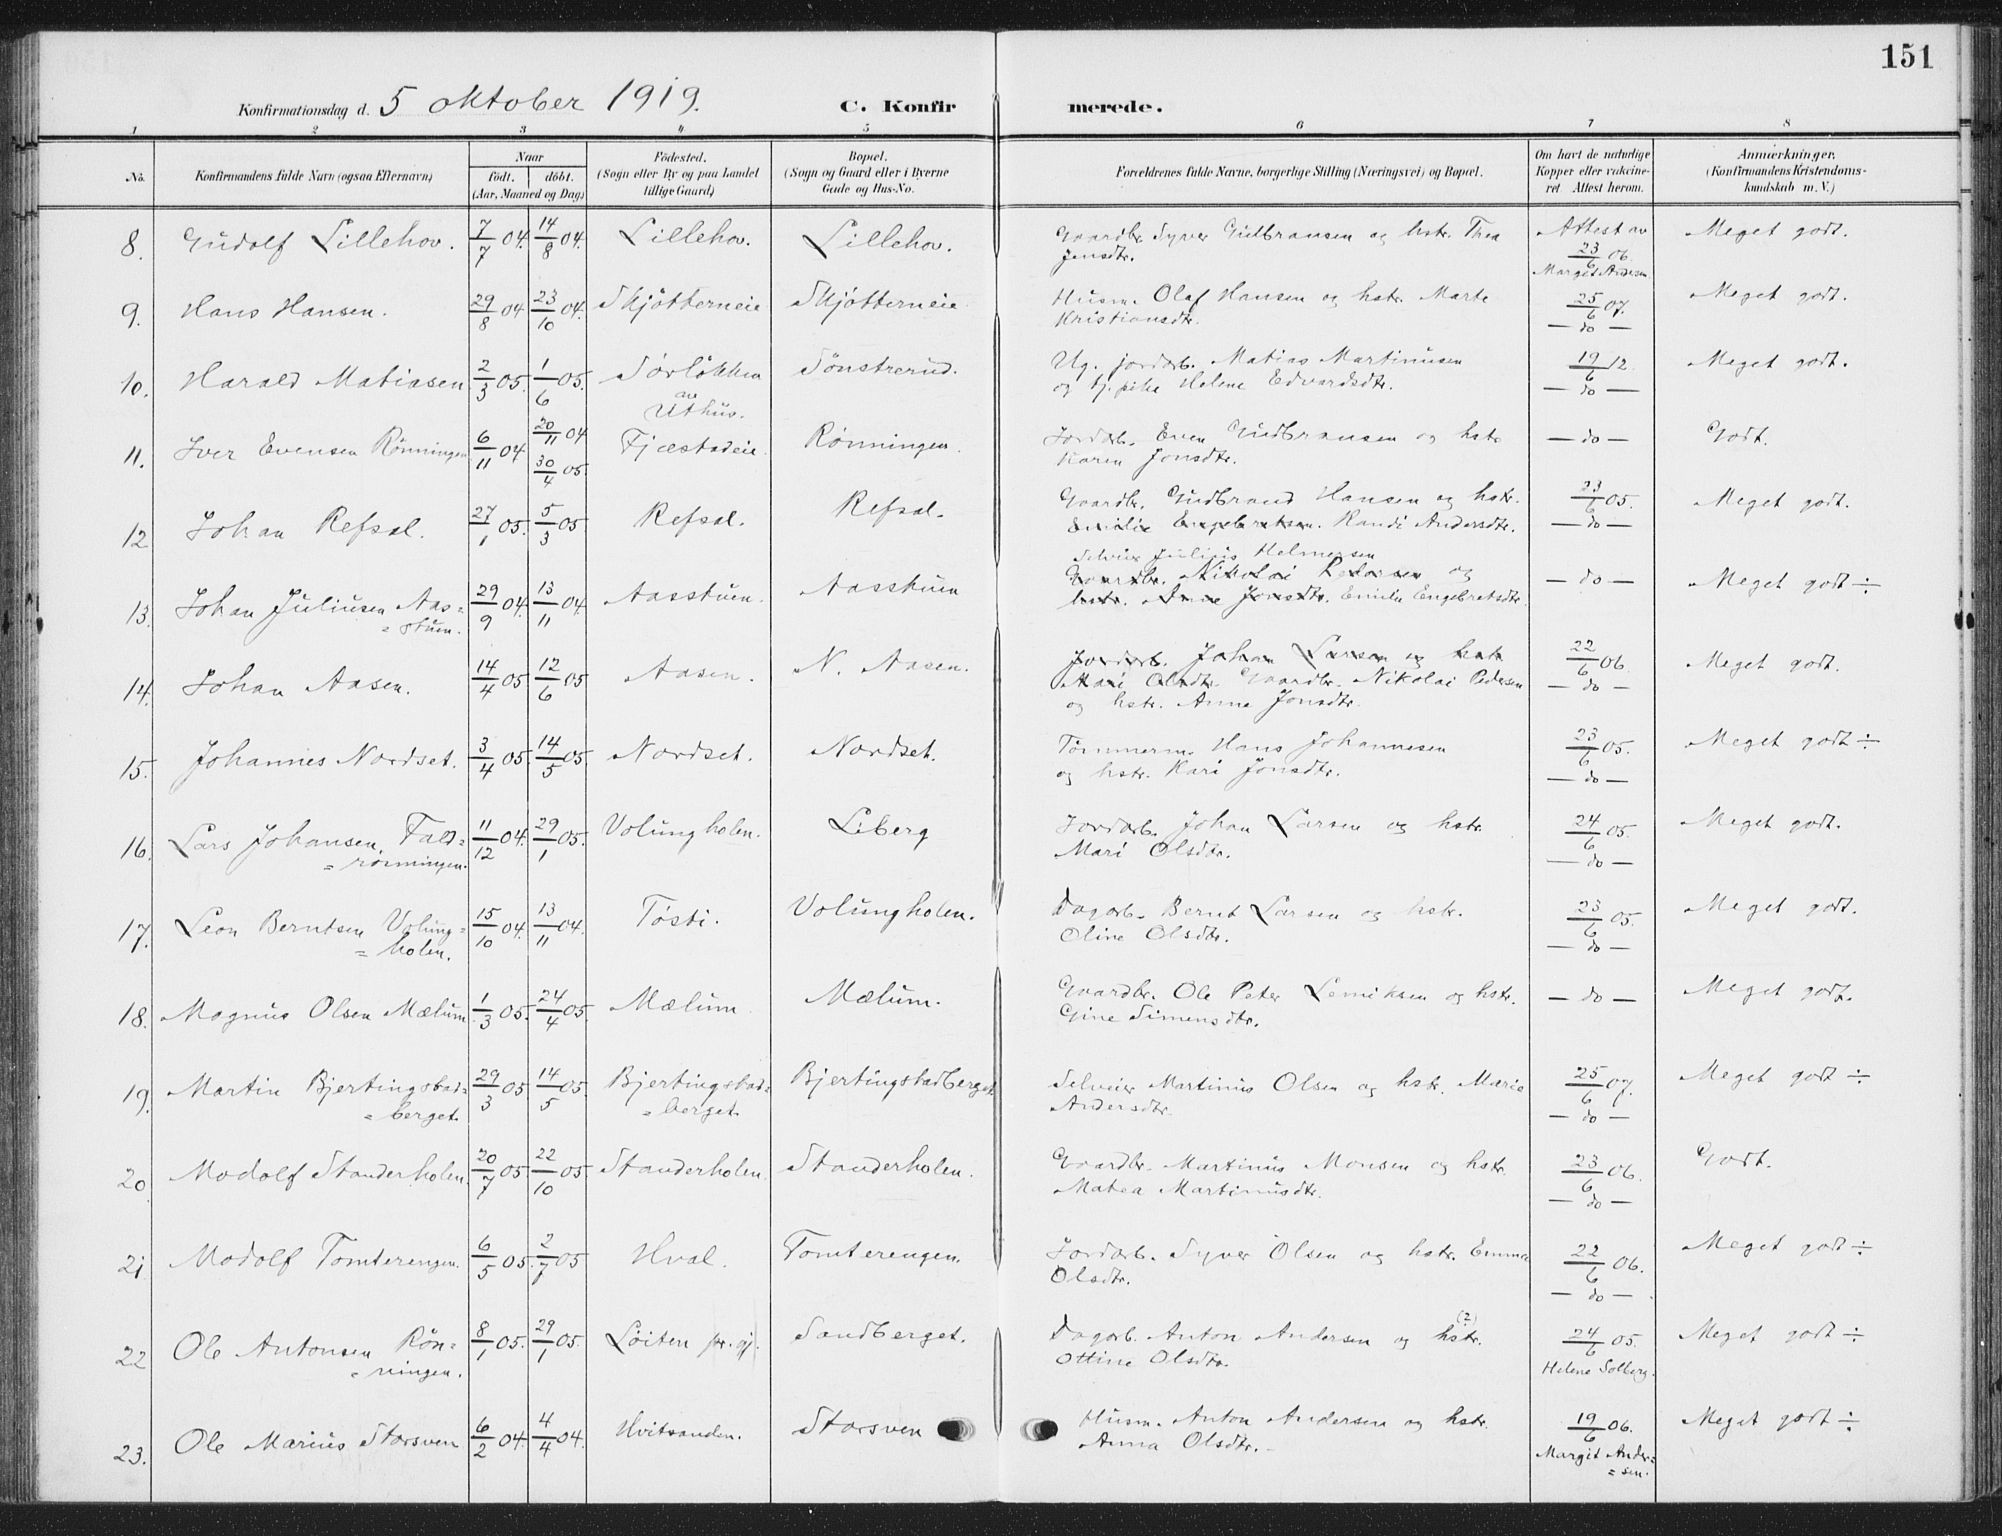 151
Konfirmationsdag d. 5 oktober 1919. C. Konfirmerede.
1 2 3 4 5 6 7 8
No. Konfirmandens fulde Navn (ogsaa Efternavn) Naar födt. döbt. (Aar, Maaned og Dag) Födested. (Sogn eller By og paa Landet tillige Gaard) Bopæl. (Sogn og Gaard eller i Byerne Gade og Hus-No. Forældrenes fulde Navne, borgerlige Stilling (Næringsvei) og Bopæl. Om havt de naturlige Kopper eller vakcineret Attest herom. Anmærkninger. (Konfirmandens Kristendomskundskab m. V.)
8. Gudolf Lillehov. 7/7 04. 14/8 04. Lillehov. Lillehov. Gaardbr. Syver Gudbransen og hstr. Thea Attest av Meget godt.
Jensdtr. 23/6 06. Margit Andersen
9. Hans Hansen. 29/8 04 23/10 04. Skjötterneie Skjötterneie Husm. Olaf Hansen og hstr. Marte 25/6 07. Meget godt.
Kristiansdtr. — do —
10. Harald Matiasen 2/3 05. 1/6 05. Sörlökken Sönstrerud. Ug. jordarb. Matias Martinusen 19/6 12. Meget godt.
av Uthus. og tj. pike Helene Edvardsdtr. — do —
11. Iver Evensen Rönningen 6/11 04 20/11 04 Fjæstadeie Rönningen. Jordarb. Even Gudbransen og hstr. — do — Godt.
30/4 05. Karen Jonsdtr.
12 Johan Refsal. 27/1 05. 5/3 05 Refsal. Refsal. Gaardbr. Gudbrand Hansen og hstr. 23/6 05. Meget godt.
Emilie Engebretsen. Randi Andersdtr. — do —
Selveier Julius Helmersen
13. Johan Juliusen Aas= 29/9 04. 13/11 04. Aasstuen. Aasstuen Gaardbr. Nikolai Pedersen og — do — Meget godt ÷
= stuen. hstr. Anne Jonsdtr. Emilie Engebretsdtr.
14. Johan Aasen. 14/4 05 12/6 05 Aasen. N. Aasen. Jordarb. Johan Larsen og hstr. 22/6 06 Meget godt.
Mari Olsdtr. Gaardbr. Nikolai Pedersen — do —
og hstr. Anna Jonsdtr.
15. Johannes Nordset. 3/4 05. 14/5 05. Nordset. Nordset. Tömmerm. Hans Johannesen 23/6 05. Meget godt ÷
og hstr. Kari Jonsdtr. — do —
16. Lars Johansen Fald= 11/12 04. 29/1 05. Volungholen. Liberg Jordarb. Johan Larsen og hstr. 24/6 05. Meget godt.
= rönningen. Mari Olsdtr. — do —
17. Leon Berntsen Volung= 15/10 04. 13/11 04. Tösti. Volungholen. Dagarb. Bernt Larsen og hstr. 23/6 05. Meget godt.
= holen. Oline Olsdtr. — do —
18. Magnus Olsen Mælum 1/3 05. 24/4 05. Mælum Mælum. Gaardbr. Ole Peter Lemiksen og hstr. — do — Meget godt.
Gine Simensdtr.
19. Martin Bjertingstad= 29/3 05 14/5 05. Bjertingstad= Bjertingstadberget Selveier Martinus Olsen og hstr. Marie 25/6 07. Meget godt ÷
= berget. = berget. Andersdtr. — do —
20. Modolf Standerholen. 20/7 05. 22/10 05. Standerholen. Standerholen. Gaardbr. Martinus Monsen og hstr. 23/6 06. Godt.
Matea Martinusdtr. — do —
21. Modolf Tomterengen. 6/5 05. 2/7 05 Hval. Tomterengen. Jordarb. Syver Olsen og hstr. Emma 22/6 06. Meget godt ÷
Olsdtr. — do —
22 Ole Antonsen Rön= 8/1 05. 29/1 05. Löiten pr. gj. Sandberget. Dagarb. Anton Andersen og hstr. (?) 24/6 05. Meget godt ÷
= ningen. Ottine Olsdtr. Helene Solberg.
23. Ole Marius Storsven 6/2 04. 4/4 04. Hvitsanden. Storsven Husm. Anton Andersen og hstr. 19/6 06. Meget godt ÷
Anna Olsdtr. Margit Ander=
= sen.